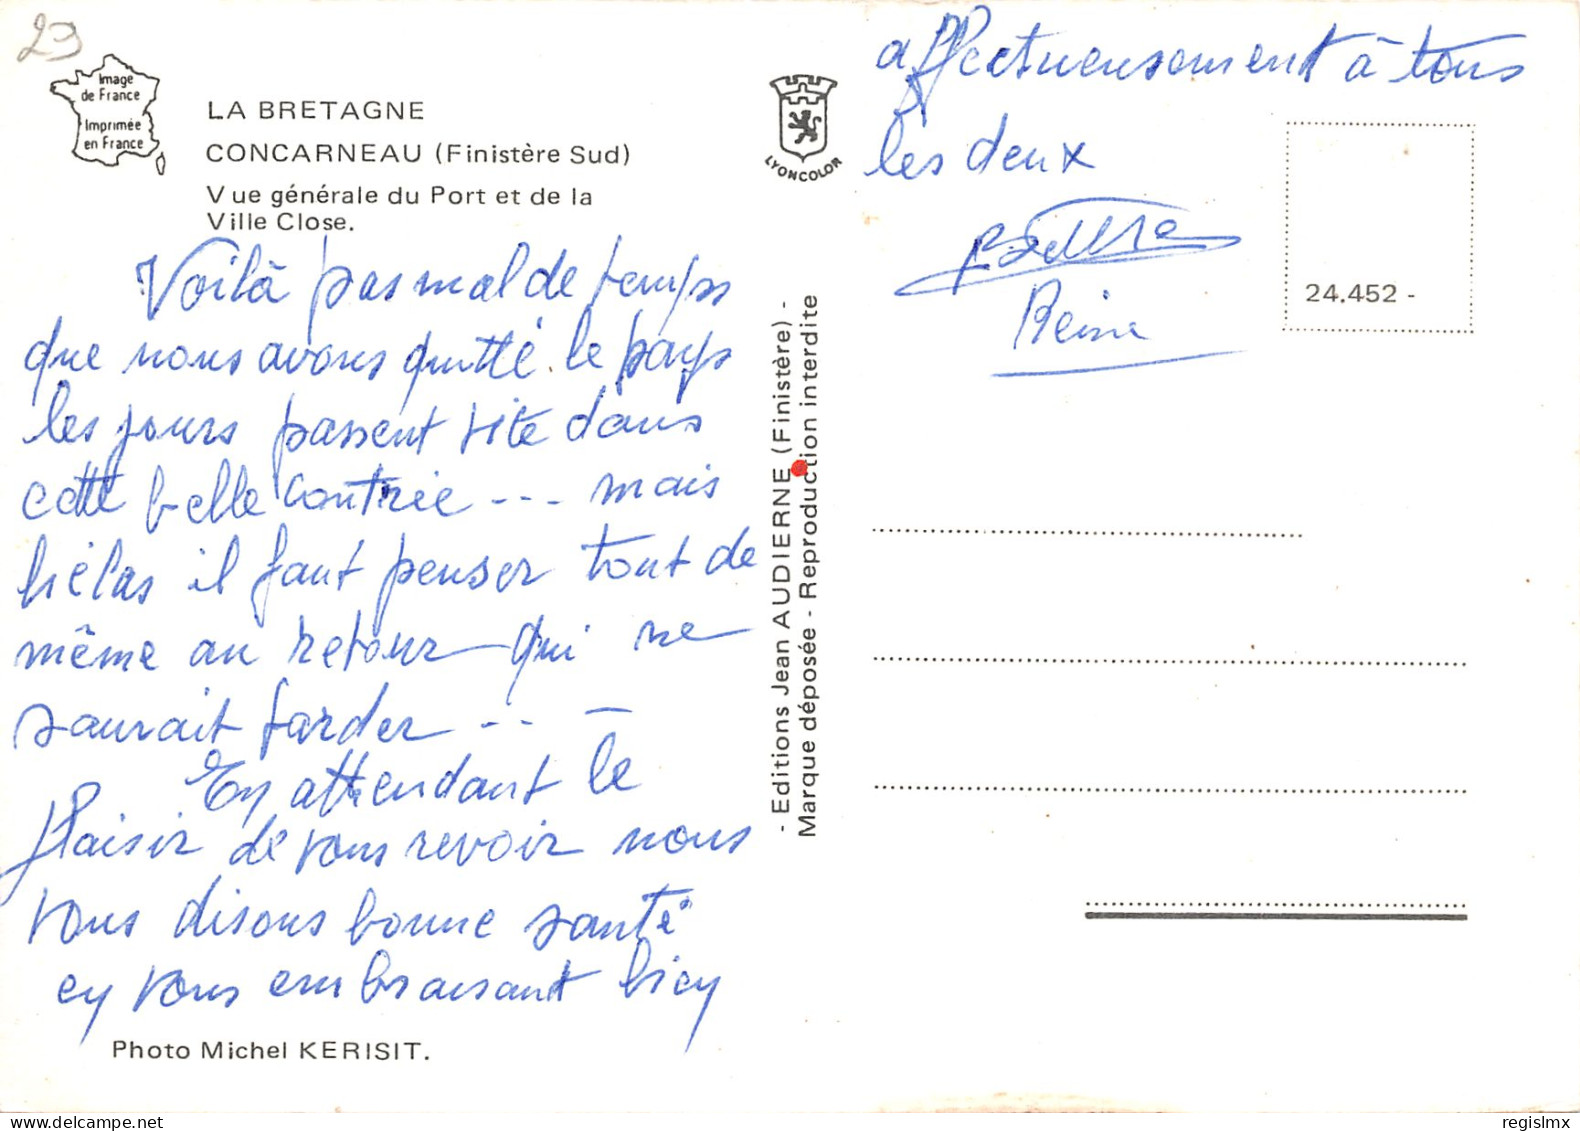 29
Image
de France
Imprimée
en France
LA BRETAGNE
CONCARNEAU (Finistère Sud)
Vue générale du Port et de la
Ville Close.
Voilà pas mal de temps
que nous avons quitté le pays
les jours passent vite dans
cette belle contrée --- mais
hélas il faut penser tout de
même au retour qui ne
saurait tarder -- –
En attendant le
plaisir de vous revoir nous
vous disons bonne santé
en vous embrassant bien
Photo Michel KERISIT.
- Editions Jean AUDIERNE (Finistère) -
Marque déposée - Reproduction interdite
LYONCOLOR
affectueusement à tous
les deux
Reine
24.452 -
regislmx